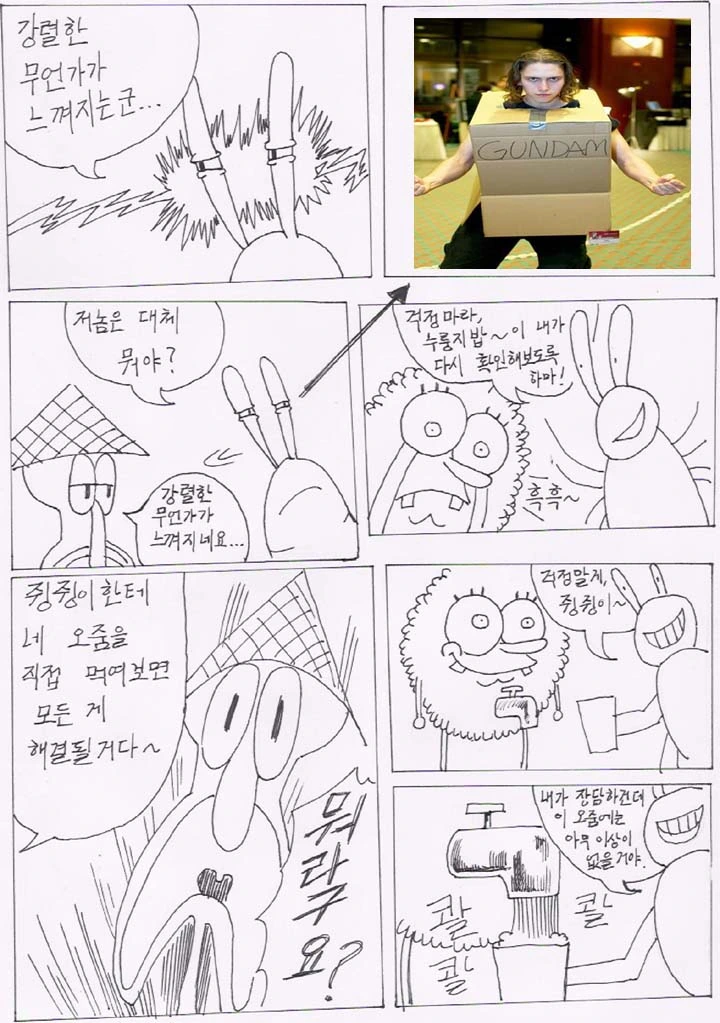 강렬한
무언가가
느껴지는군...
GUNDAM
저놈은 대체
뭐야?
강렬한
무언가가
느껴지네요...
걱정마라,
누룽지밥~이 내가
다시 확인해보도록
하마!
흑흑~
쥥쥥이한테
네 오줌을
직접 먹여보면
모든 게
해결될거다~
뭐라구요?
걱정말게,
쥥쥥이~
내가 장담하건데
이 오줌에는
아무 이상이
없을거야.
콸
콸
콸